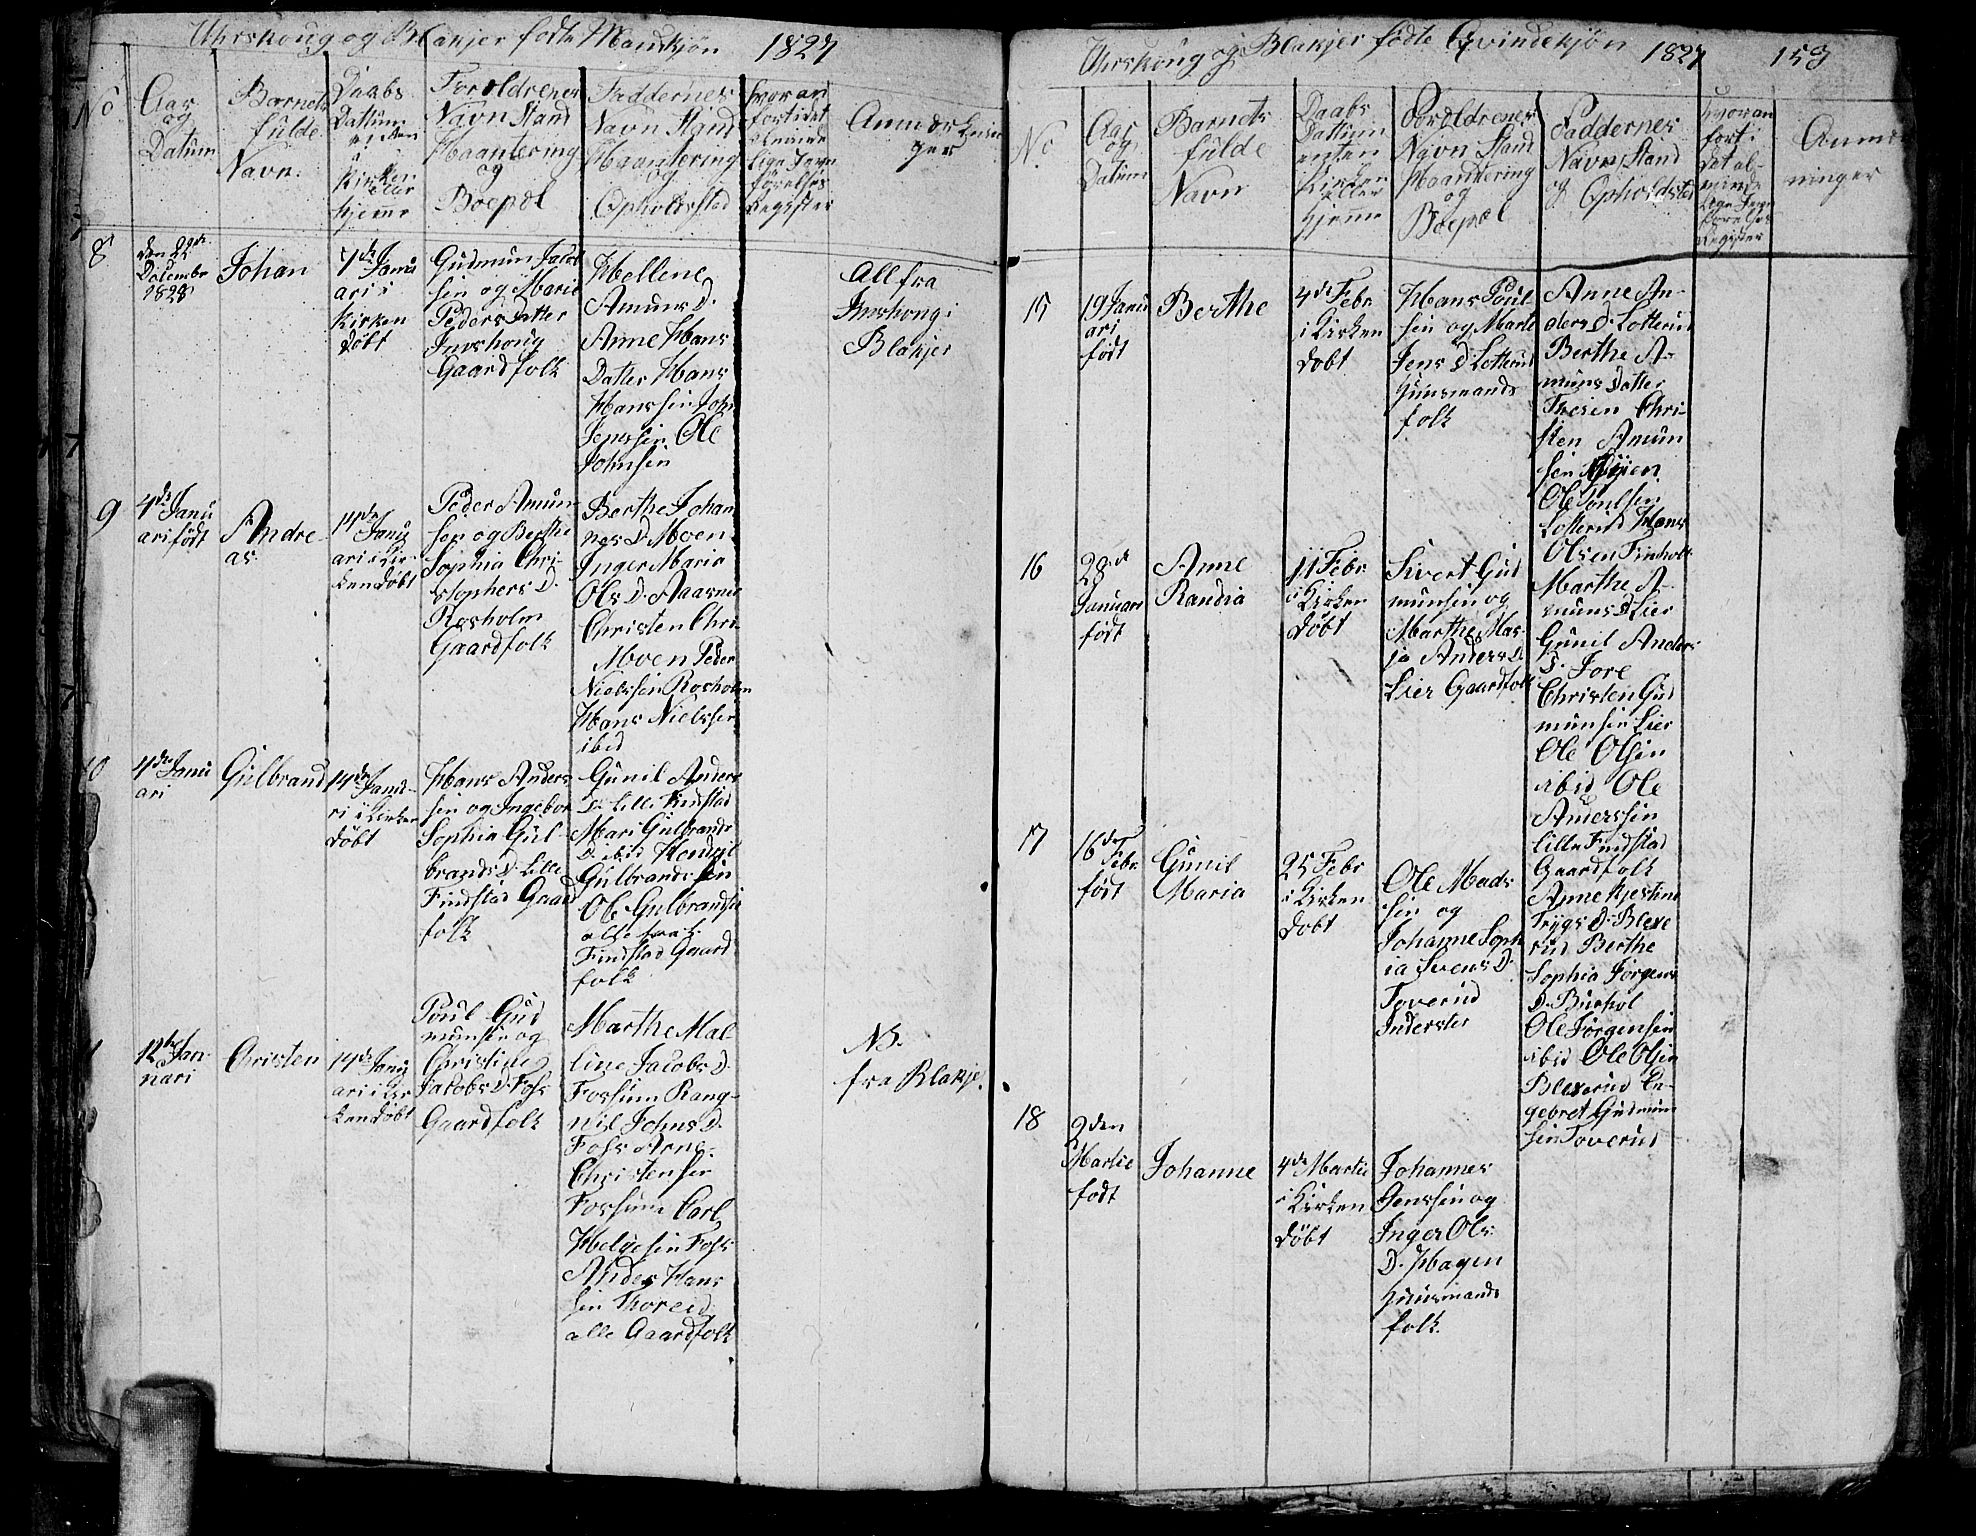 Uhrskoug og Blakjer fødte Mandkjøn 1827
No
Aar
og
Datum
Barnets
fulde
Navn.
Daabs
Dattum
enten
i
Kirken
eller
hjeme
Forældrenes
Navn Stand
Haantering
og
Boepæl
Faddernes
Navn Stand
Haantering
og
Opholdsstad
hvoran
fort i det
alminde
lige Jevn
førelses
Register
Anmærknin
ger
8
den 22de
Desembr
1828
Johan
7de Janu
ari i
Kirken
døbt
Gudmun Jacob
sin og Marie
Peders Datter
Imshoug
Gaardfolk
Hellene
Amuns D.
Anne Hans
Datter Hans
Hanssin John
Jenssin Ole
Johnsin
All fra
Imshoug i
Blakjer
9
4de Janu
ari født
Andre
as.
14de
Janu
ari i Kir
ken døbt
Peder Amun
sen og Berthe
Sophia Chri
stophers D.
Rosholm
Gaardfolk
Berthe Johan
nes D. Moen
Inger Maria
Ols D. Aasnes
Christen Chri.
Moen Peder
Nielssin Rosholm
Hans Nielssin
ibid
10
4de Janu
ari
Gulbrand
14de Janua
ri i Kirken
døbt
Hans Anders
sin og Ingebor
Sophia Gul
brands D. Lille
Findstad Gaard
folk
Gunil Anders
D. Lille Findstad
Mari Gulbrands
D ibid Hendril
Gulbrandssin
Ole Gulbrandsin
alle fra L.
Findstad Gaard
folk
12te Jan
nari
Christen
14de Janu
ari i Kir
ken døbt
Poul Gud
munsin og
Christine
Jacobs D. Foss
Gaardfolk
Marthe Mal
line Jacobs D.
Fossum Rang-
nil Johns D.
Foss Arne
Christensen
Fossum Carl
Helgesin Foss
Anders Hans
sin Thoreid
alle Gaardfolk
NB.
fra Blakje.
Uhrskoug og Blakjer fødte Qvindekjøn 1827 153
No
Aar
og
Datum
Barnets
fulde
Navn
Daabs
Dattum
enten
Kirken
eller
hjeme
Forældrenes
Navn Stand
Haantering
og
Boepæl
Faddernes
Navn Stand
og Opholdstad
hvoran
fort i
det al-
minde
lige Jevn
førelses
Register
Anmær
ninger
15
19 Janu
ari
født
Berthe
4de Febr
i Kirken
døbt
Hans Poul
sin og Marte
Jens D Lotterud
Huusmands
folk
Anne An-
ders D. Lotterud
Berthe A-
muns Datter
Theien Chri-
sten Amun
sen Theien
Ole Poulsen
Lotterud Hans
Olsen Finholt
16
29de
Januari
født
Anne
Randia
11 Febr
i Kirken
døbt
Sivert Gud
munsin og
Marthe Mar-
ja Anders D.
Lier Gaardfolk
Marthe A-
muns D Lier
Gunil Anders
D. Fore
Christen Gud
munsin Lier
Ole Olsin
ibid Ole
Anderssin
Lille Findstad
Gaardfolk
17
16de
Febr
født
Gunil
Maria
25 Febr
i Kirken
døbt
Ole Mads
sin og
Johanne Soph
ia Svens D.
Toverud
Inderster
Anne Kjestine
Trygs D. Blexe
rud Berthe
Sophia Jørgens
D. Burhol
Ole Jørgensin
ibid Ole Olsin
Blexerud En-
gebret Gudmun
sin Toverud
18
2den
Martie
født
Johanne
4de Martie
i Kirken
døbt
Johannes
Jenssin og
Inger Ols
D. Hagen
Huusmands
folk.